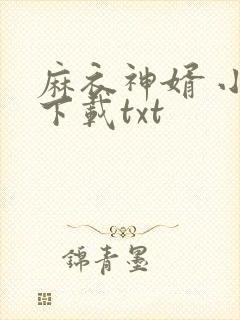 麻衣神婿 小
下載txt
錦青墨